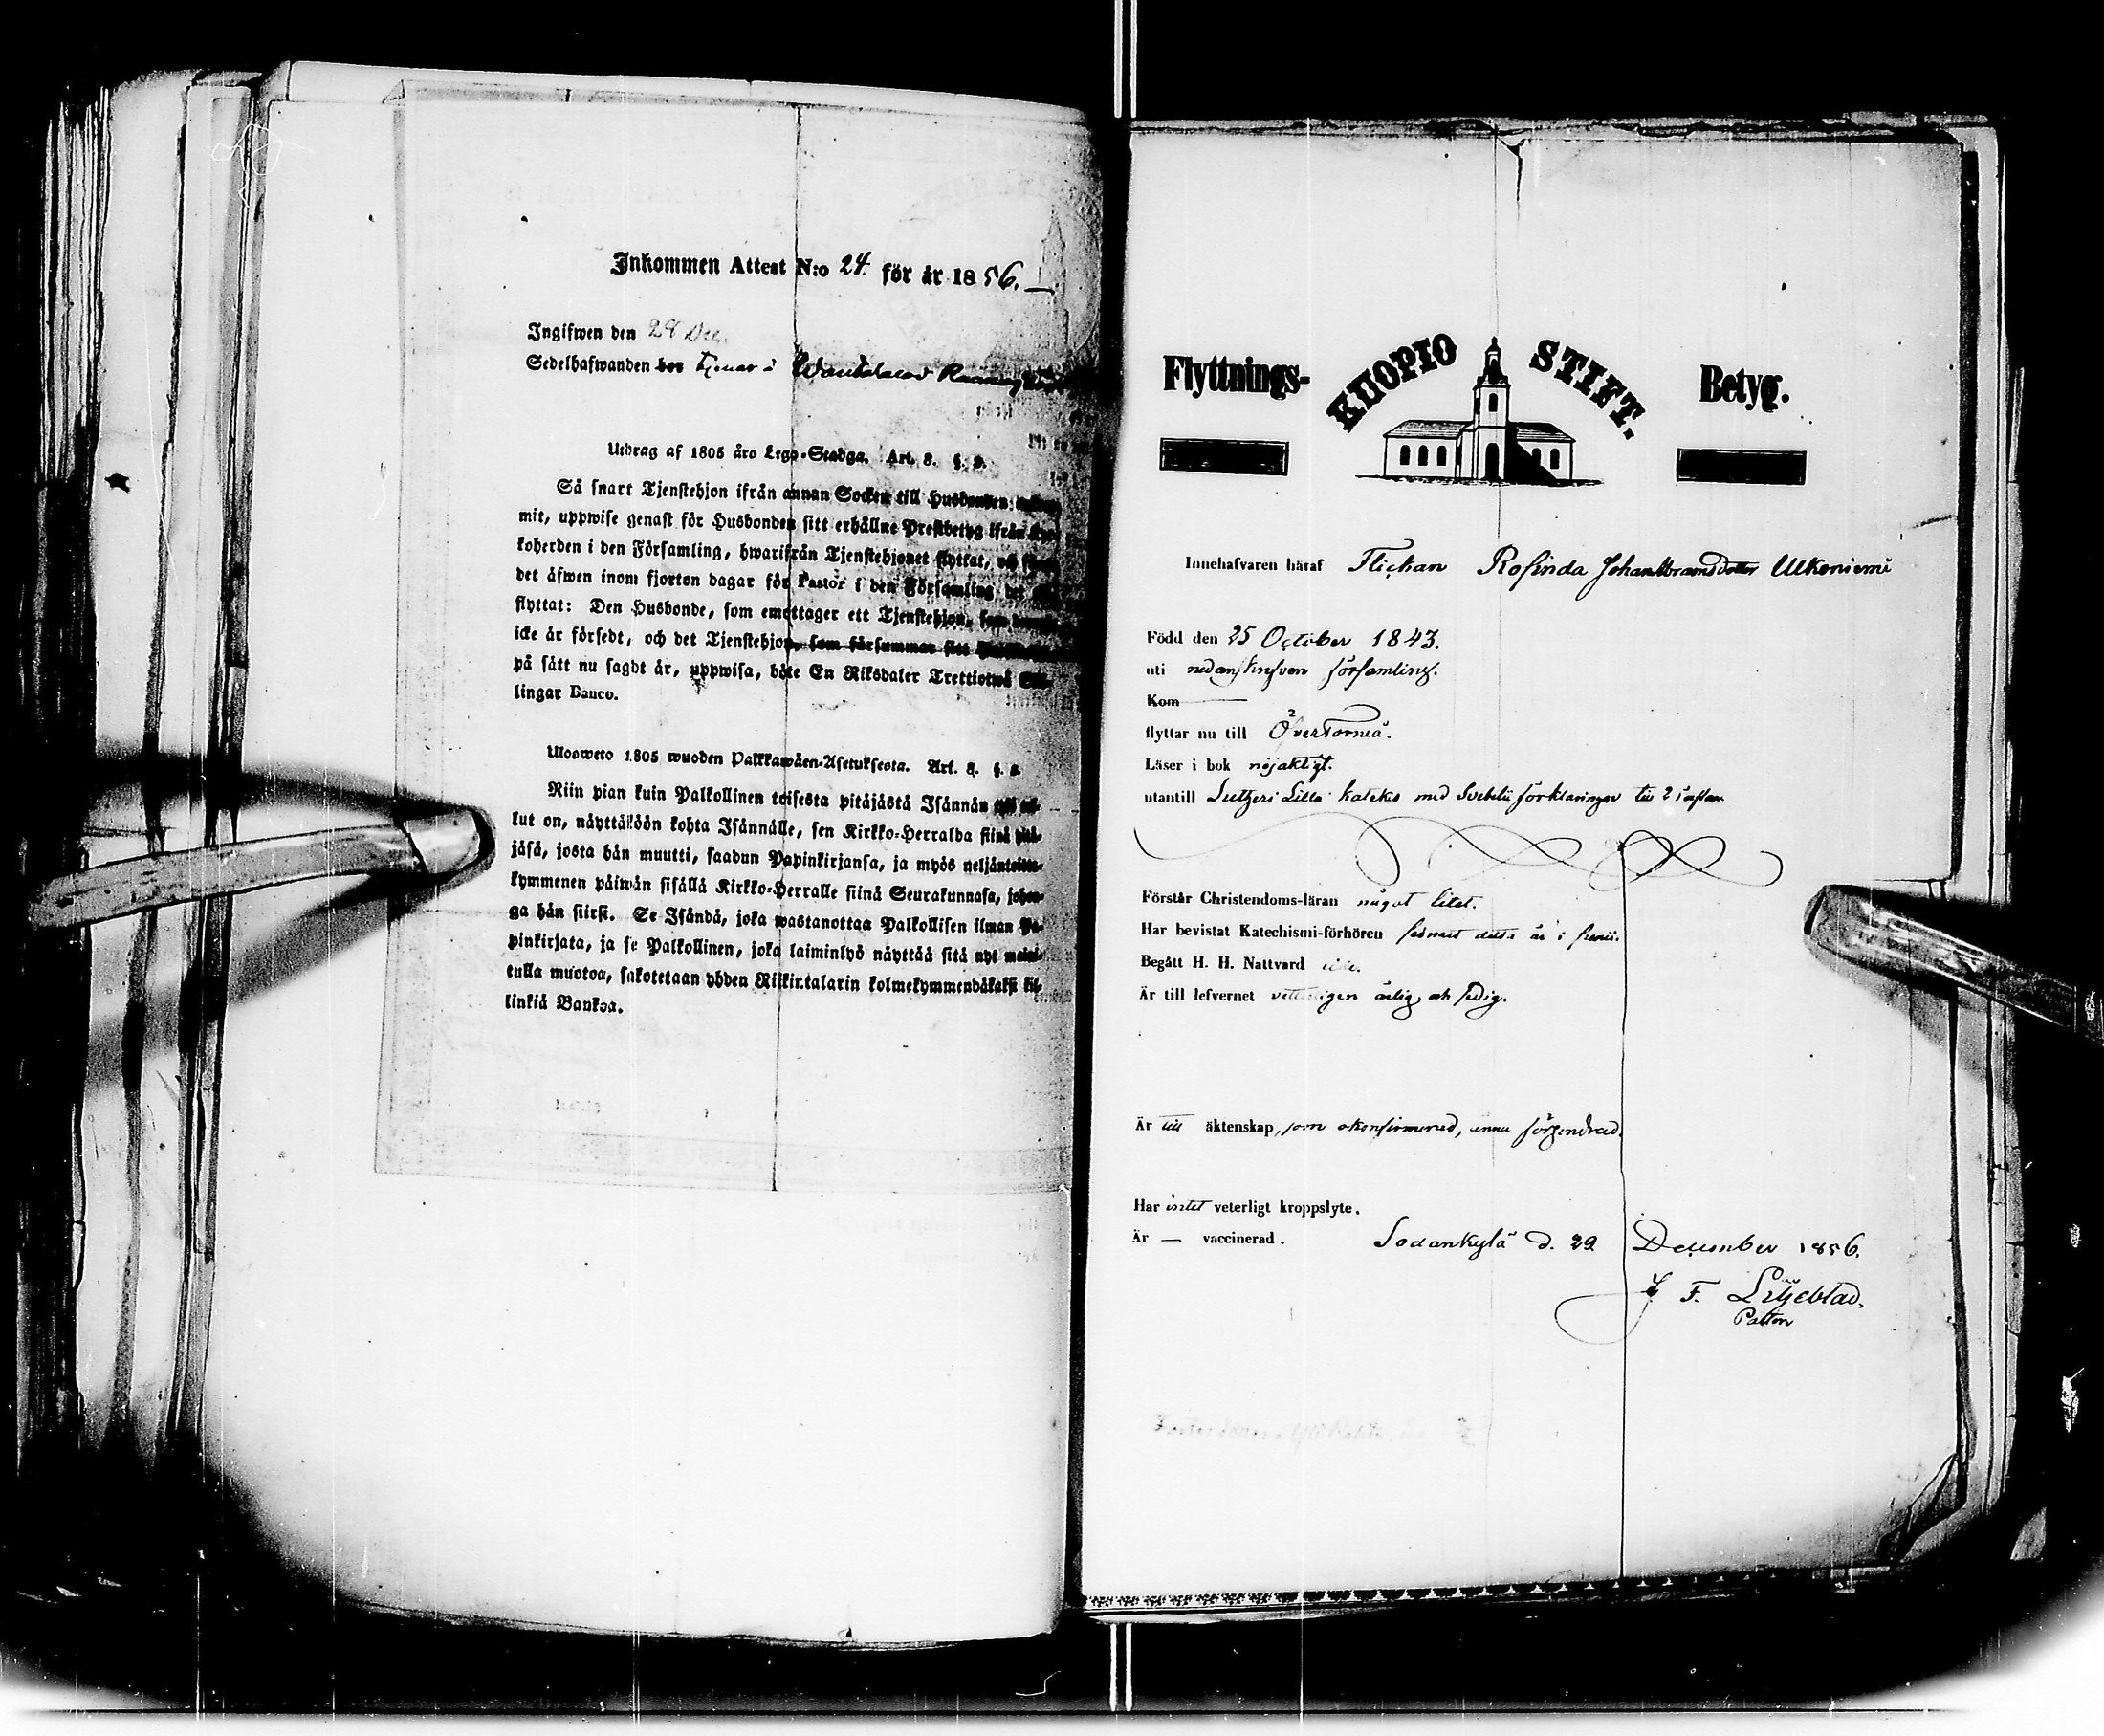 Inkommen Attest N:o 24. för år 1856.
Ingifwen den 28 Dec.
Sedelhafwanden hos tjenar i
Utdrag af 1805 års Lego-Stadga. Art. 8. §. 9.
Så snart Tjenstehjon ifrån annan Socken till Husbonden
mit, uppwise genast för Husbonden sitt erhållne Prestbetyg ifrån
koherden i den Församling, hwarifrån Tjenstehjonet flyttat, och
det äfwen inom fjorton dagar för Pastor i den Församling det
flyttat: Den Husbonde, som emottager ett Tjenstehjon, som
icke är försedt, och det Tjenstehjon, som försummar sitt
på sätt nu sagdt är, uppwisa, böte En Riksdaler Trettiotwå
lingar Banco.
Ulosweto 1805 wuoden Palkkawäen-Asetuksesta. Art. 8. §.
Niin pian kuin Palkollinen toisesta pitäjästä Isännän
lut on, näyttäköön kohta Isännälle, sen Kirkko-Herralda siinä pitä-
jäsä, josta hän muutti, saadun Papinkirjansa, ja myös neljäntoista-
kymmenen päiwän sisällä Kirkko-Herralle siinä Seurakunnasa, johon-
ga hän siirsi. Se Isändä, joka wastanottaa Palkollisen ilman Pa-
pinkirjata, ja se Palkollinen, joka laiminlyö näyttää sitä nyt maini-
tulla muotoa, sakotetaan yhden Riikintalarin kolmekymmendäkaksi kil-
linkiä Bankoa.
Flyttnings- KUOPIO STIFT. Betyg.
Innehafvaren häraf Flickan Rosinda Johan Abramsdotter Ulkuniemi
Född den 25 October 1843.
uti nedanskrefven församling.
Kom
flyttar nu till Öfvertorneå.
Läser i bok nöjaktigt.
utantill Lutheri Lilla katekes med Svebelii förklaringar till 2
Förstår Christendoms-läran något litet.
Har bevistat Katechismi-förhören sednast detta år i
Begått H. H. Nattvard icke.
Är till lefvernet vetterligen ärlig och sedig.
Är till äktenskap, som okonfirmerad, ännu förhindrad.
Har intet veterligt kroppslyte.
Är — vaccinerad. Sodankylä d. 29 December 1856.
F. Liljeblad.
Pastor